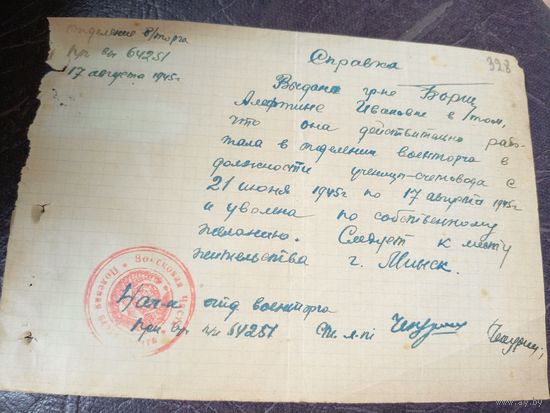 отделение в/торга
при в/ч 64251
17 августа 1945г
328
Справка
Выдана гр-не Борщ
Алевтине Ивановне в том,
что она действительно рабо-
тала в отделении военторга в
должности ученицы-счетовода с
21 июня 1945г по 17 августа 1945г
и уволена по собственному
желанию. Следует к месту
жительства г. Минск.
Нач. отд военторга
при в/ч п/п 64251
Войсковая часть
Полевая
www.ay.by